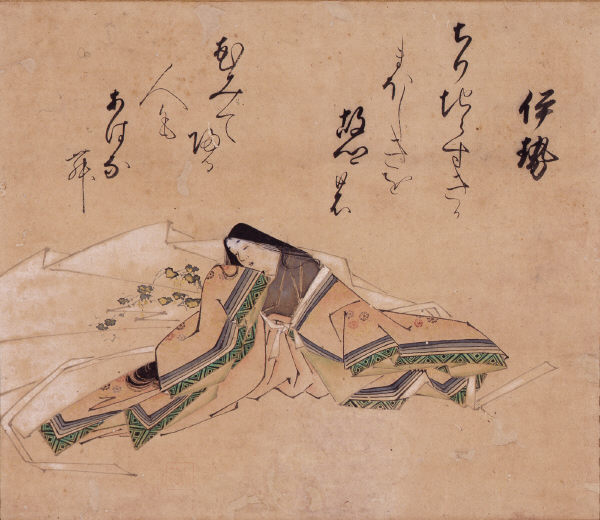 伊勢
ちりちらすきか
まほしきを
故郷の
花みて帰る
人も
あはな
む